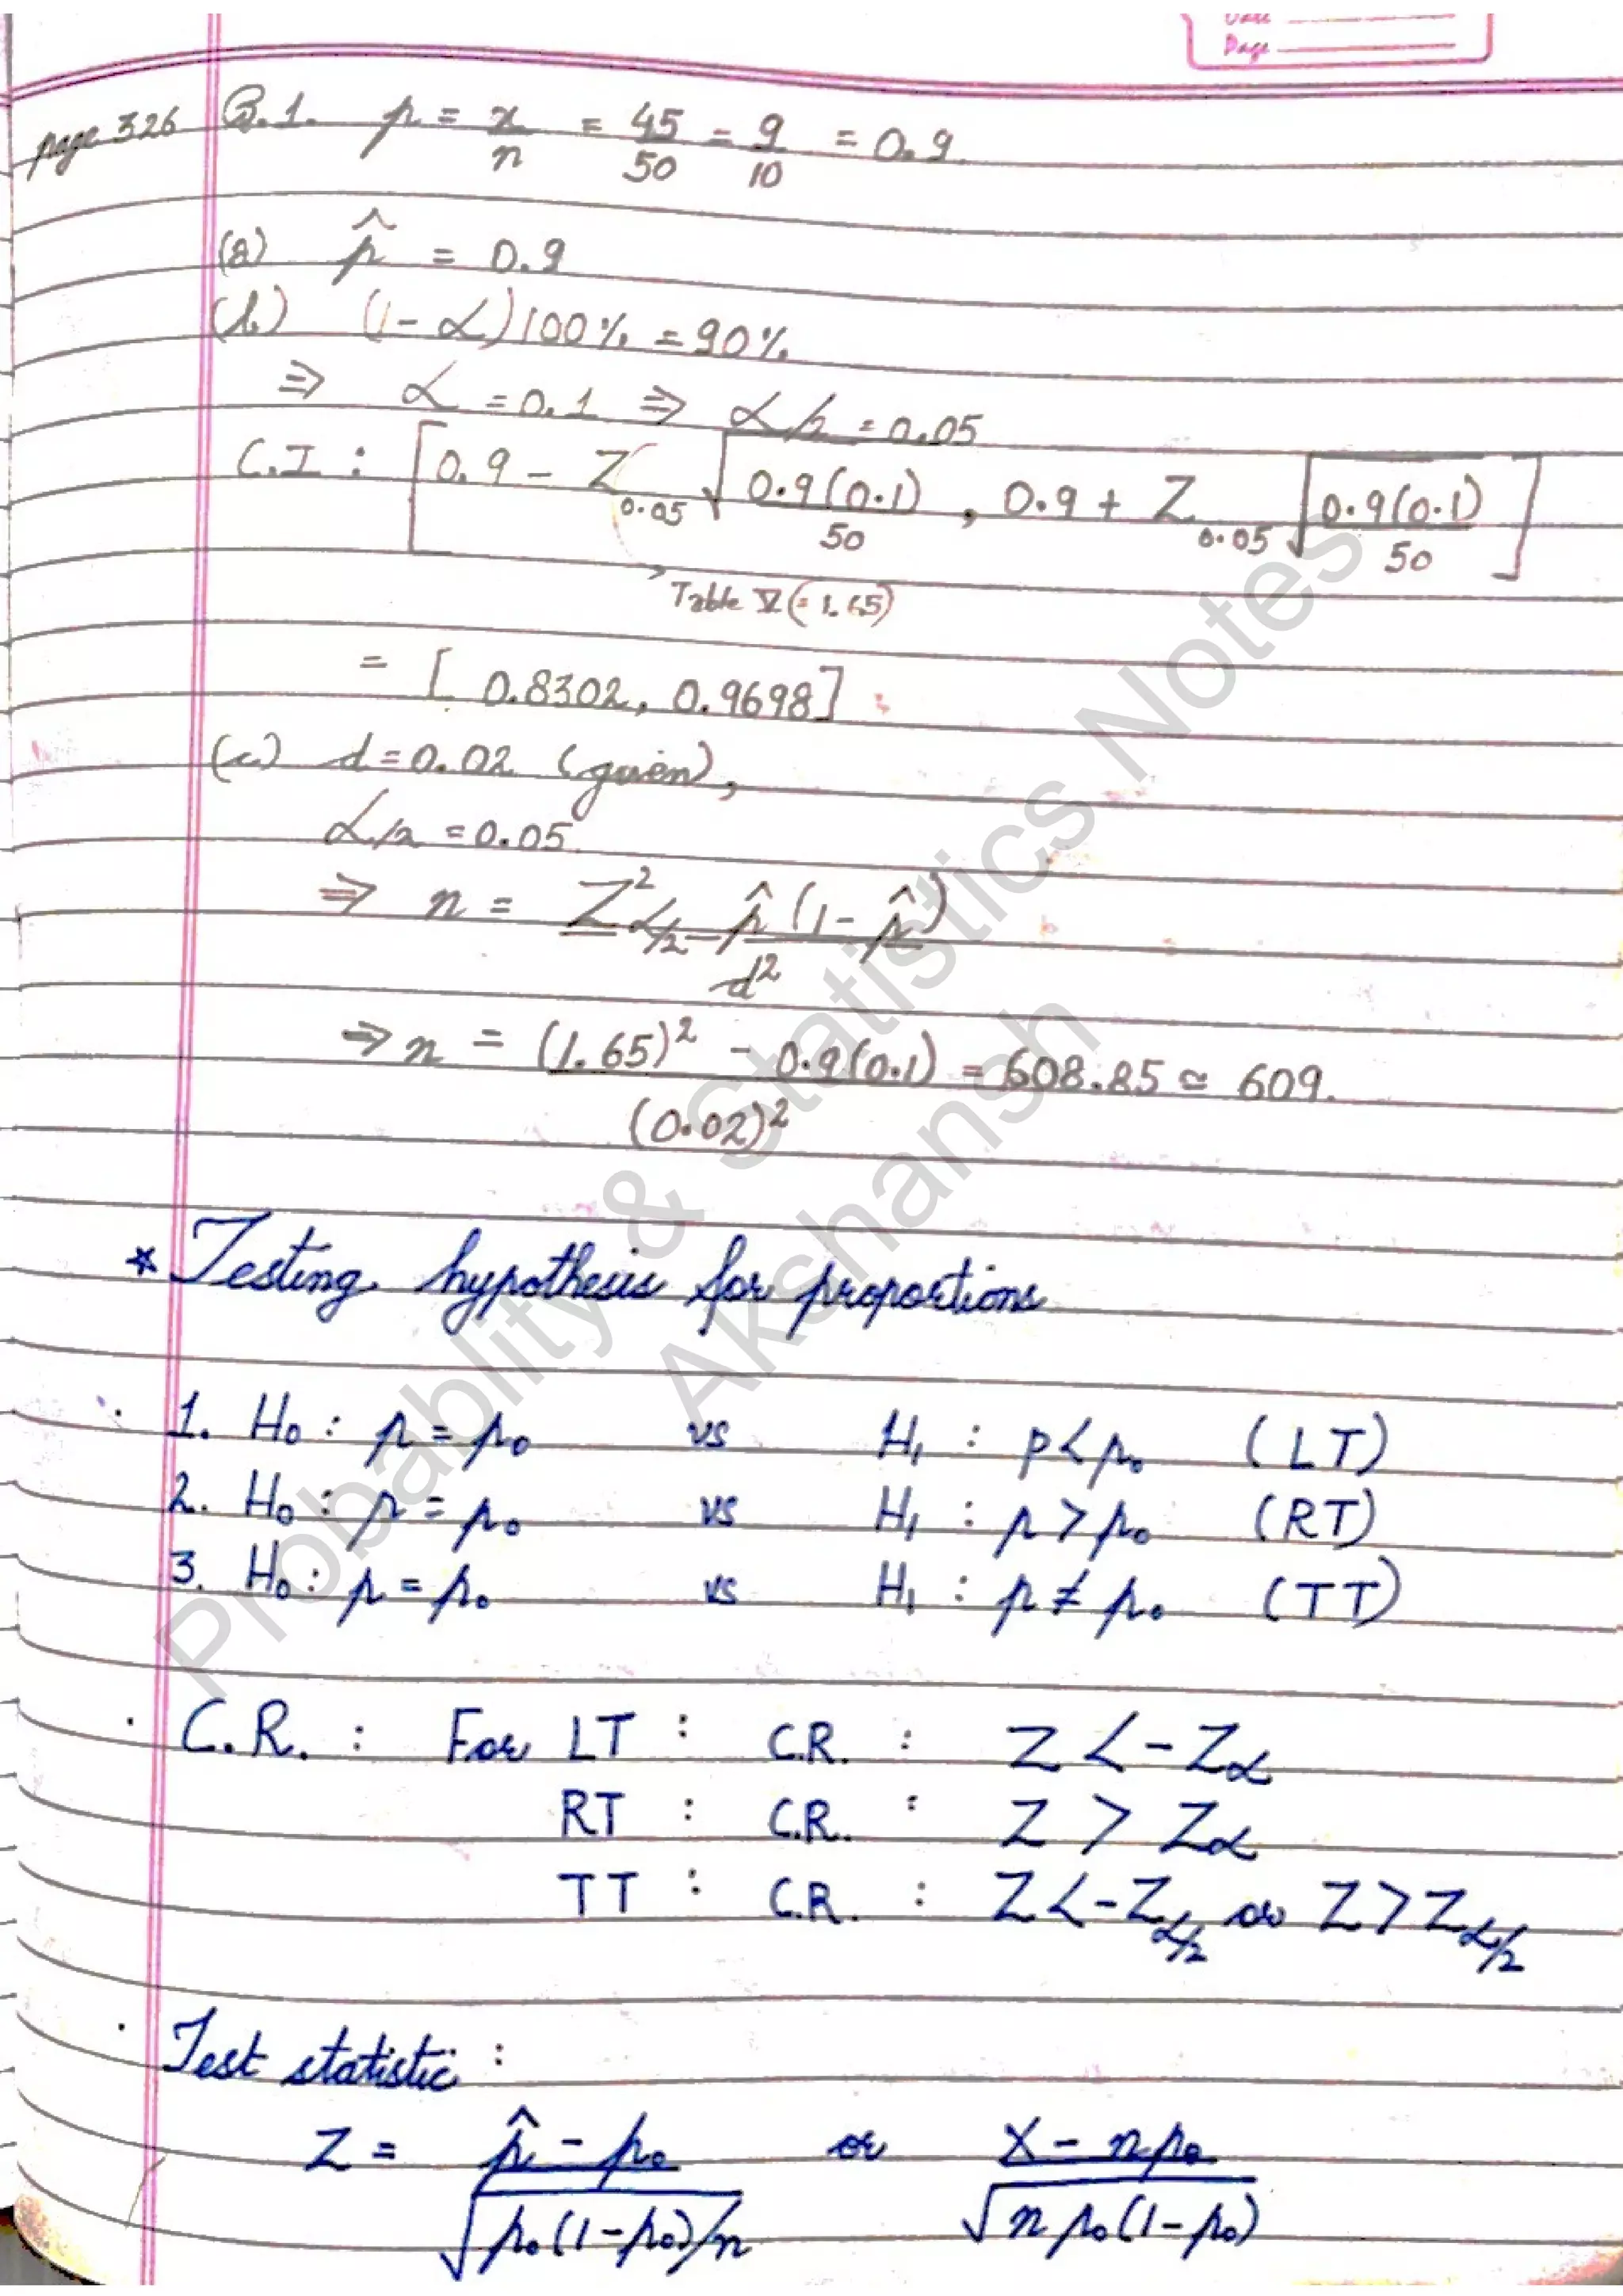 Date
Page
page 326 Q.1. p = x/n = 45/50 = 9/10 = 0.9
(a) p̂ = 0.9
(b) (1 - α)100% = 90%
⇒ α = 0.1 ⇒ α/2 = 0.05
C.I : [0.9 - Z0.05 √(0.9(0.1)/50) , 0.9 + Z0.05 √(0.9(0.1)/50)]
Table V (= 1.65)
= [0.8302, 0.9698]
(c) d = 0.02 (given),
α/2 = 0.05
⇒ n = Z²α/2 - p̂(1 - p̂) / d²
⇒ n = (1.65)² - 0.9(0.1) / (0.02)² = 608.85 ≃ 609.
* Testing hypothesis for proportions
1. H₀ : p = p₀ vs H₁ : p < p₀ (LT)
2. H₀ : p = p₀ vs H₁ : p > p₀ (RT)
3. H₀ : p = p₀ vs H₁ : p ≠ p₀ (TT)
C.R. : For LT : C.R. : Z < -Zα
RT : C.R. : Z > Zα
TT : C.R. : Z < -Zα/2 or Z > Zα/2
Test statistic :
Z = p̂ - p₀ / √(p₀(1-p₀)/n) or X - np₀ / √(np₀(1-p₀))
Probablity & Statistics Notes
Akshansh